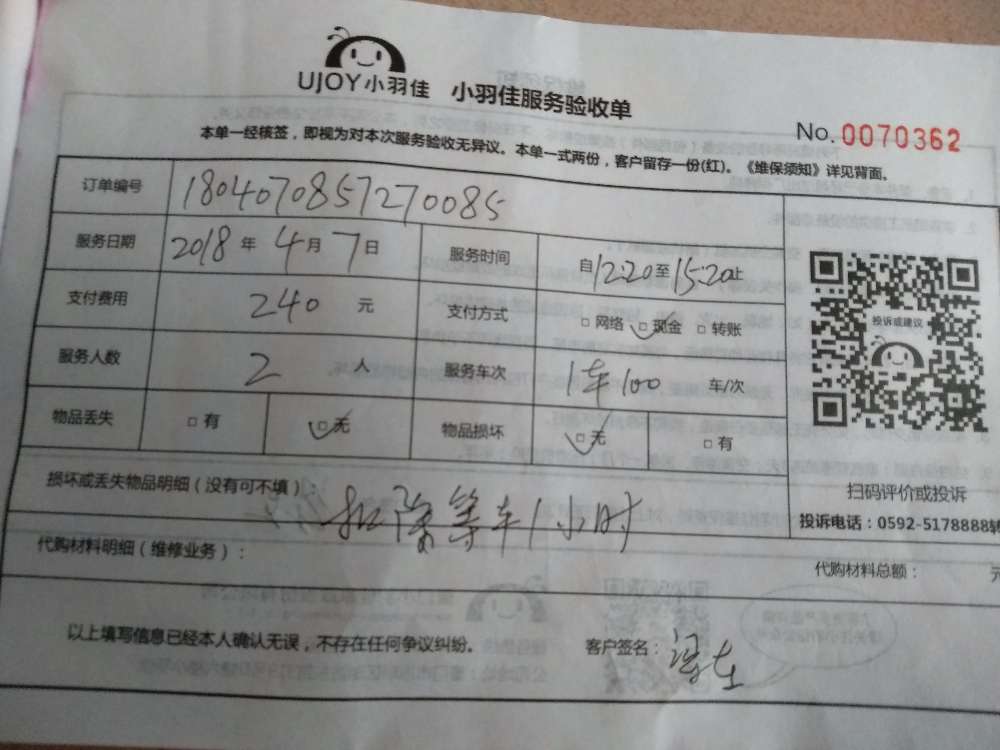 UJOY小羽佳 小羽佳服务验收单
No. 0070362
本单一经核签，即视为对本次服务验收无异议。本单一式两份，客户留存一份(红)。《维保须知》详见背面。
订单编号 1804070857270085
服务日期 2018 年 4 月 7 日 服务时间 自12:20至15:20止
支付费用 240 元 支付方式 □网络 □现金 □转账
服务人数 2 人 服务车次 1车100 车/次
物品丢失 □有 □无 物品损坏 □无 □有
投诉或建议
扫码评价或投诉
投诉电话：0592-5178888转
损坏或丢失物品明细（没有可不填）：
扣除等车1小时
代购材料明细（维修业务）：
代购材料总额： 元
以上填写信息已经本人确认无误，不存在任何争议纠纷。 客户签名：